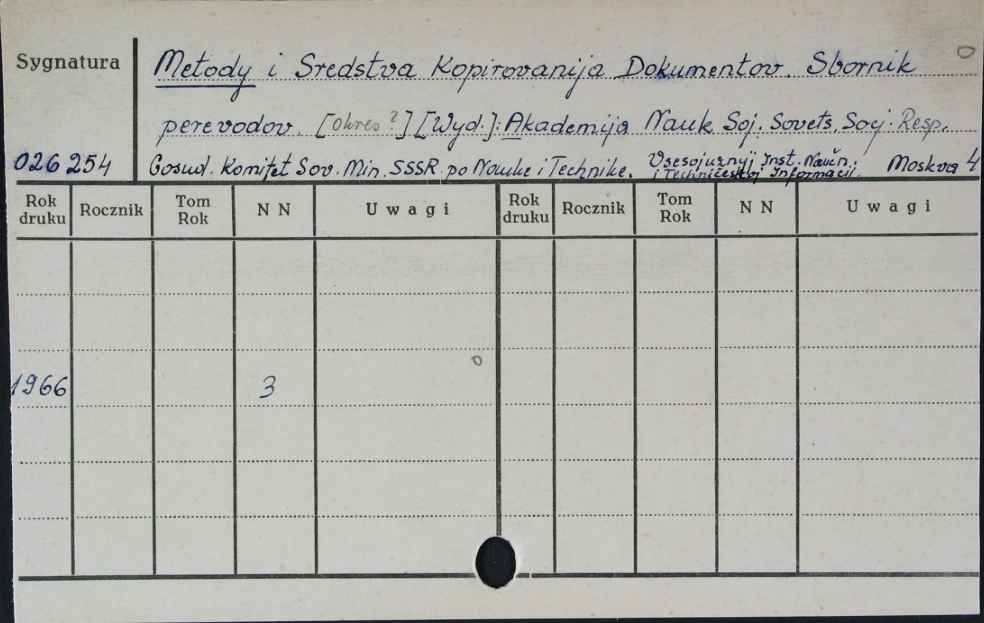 Sygnatura
Metody i Sredstva Kopirovanija Dokumentov. Sbornik
perevodov. [Okres?] [Wyd.]: Akademija Nauk Soj. Sovets. Socj. Resp.
026254 Gosud. Komitet Sov. Min. SSSR po Nauke i Technike. Vsesojuznyj Inst. Naučn. i Techničeskoj Informacii. Moskva 4
Rok druku Rocznik Tom Rok NN Uwagi Rok druku Rocznik Tom Rok NN Uwagi
1966 3